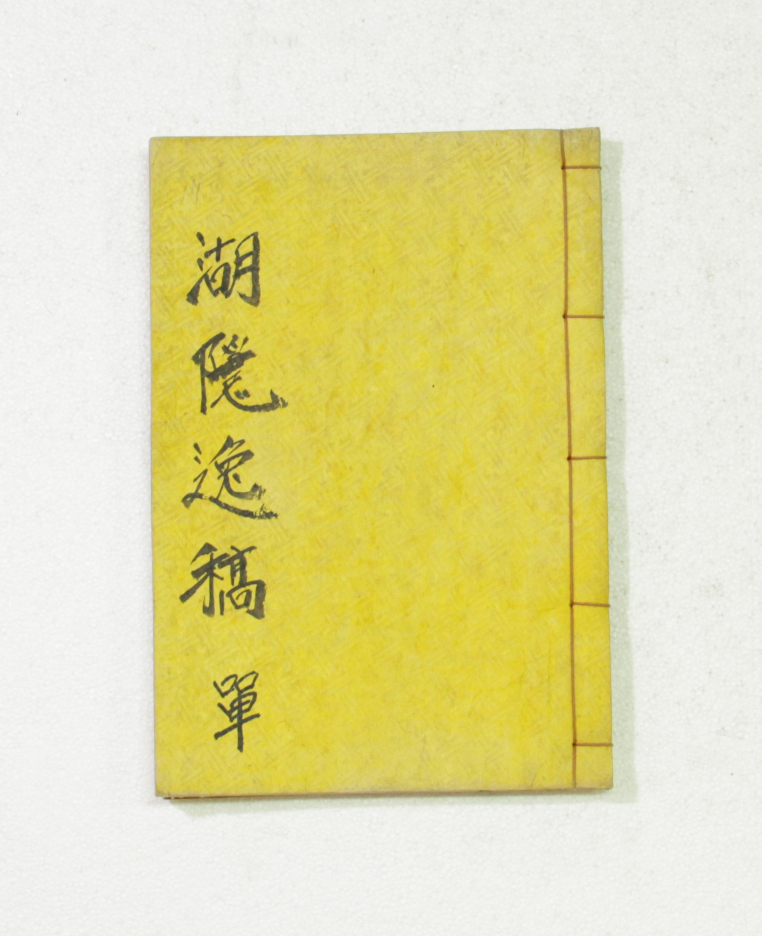 湖隱逸稿 單